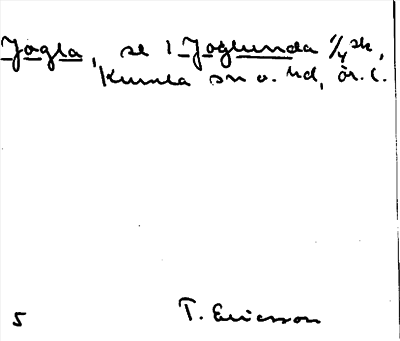 Jogla, se 1 Joglunda 1/4 sk,
Kumla sn o. hd, ör. l.
5 T. Ericsson